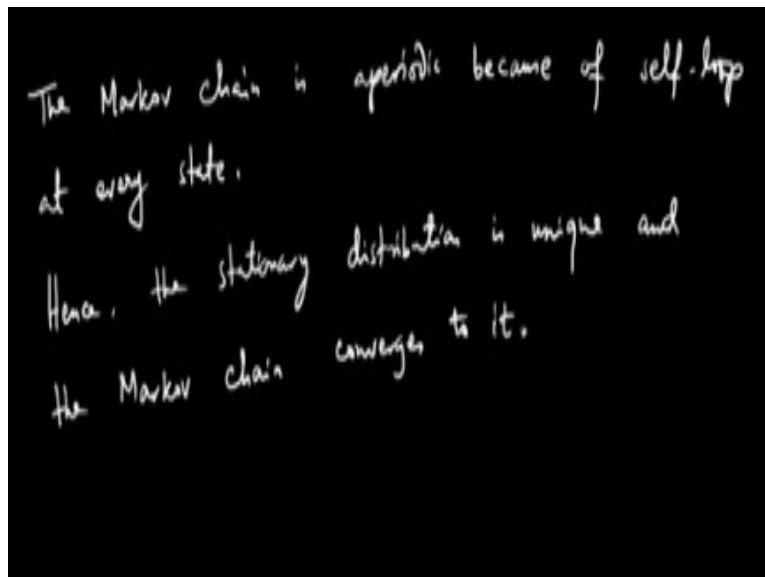 The Markov chain is aperiodic because of self-loop
at every state.
Hence, the stationary distribution is unique and
the Markov chain converges to it.